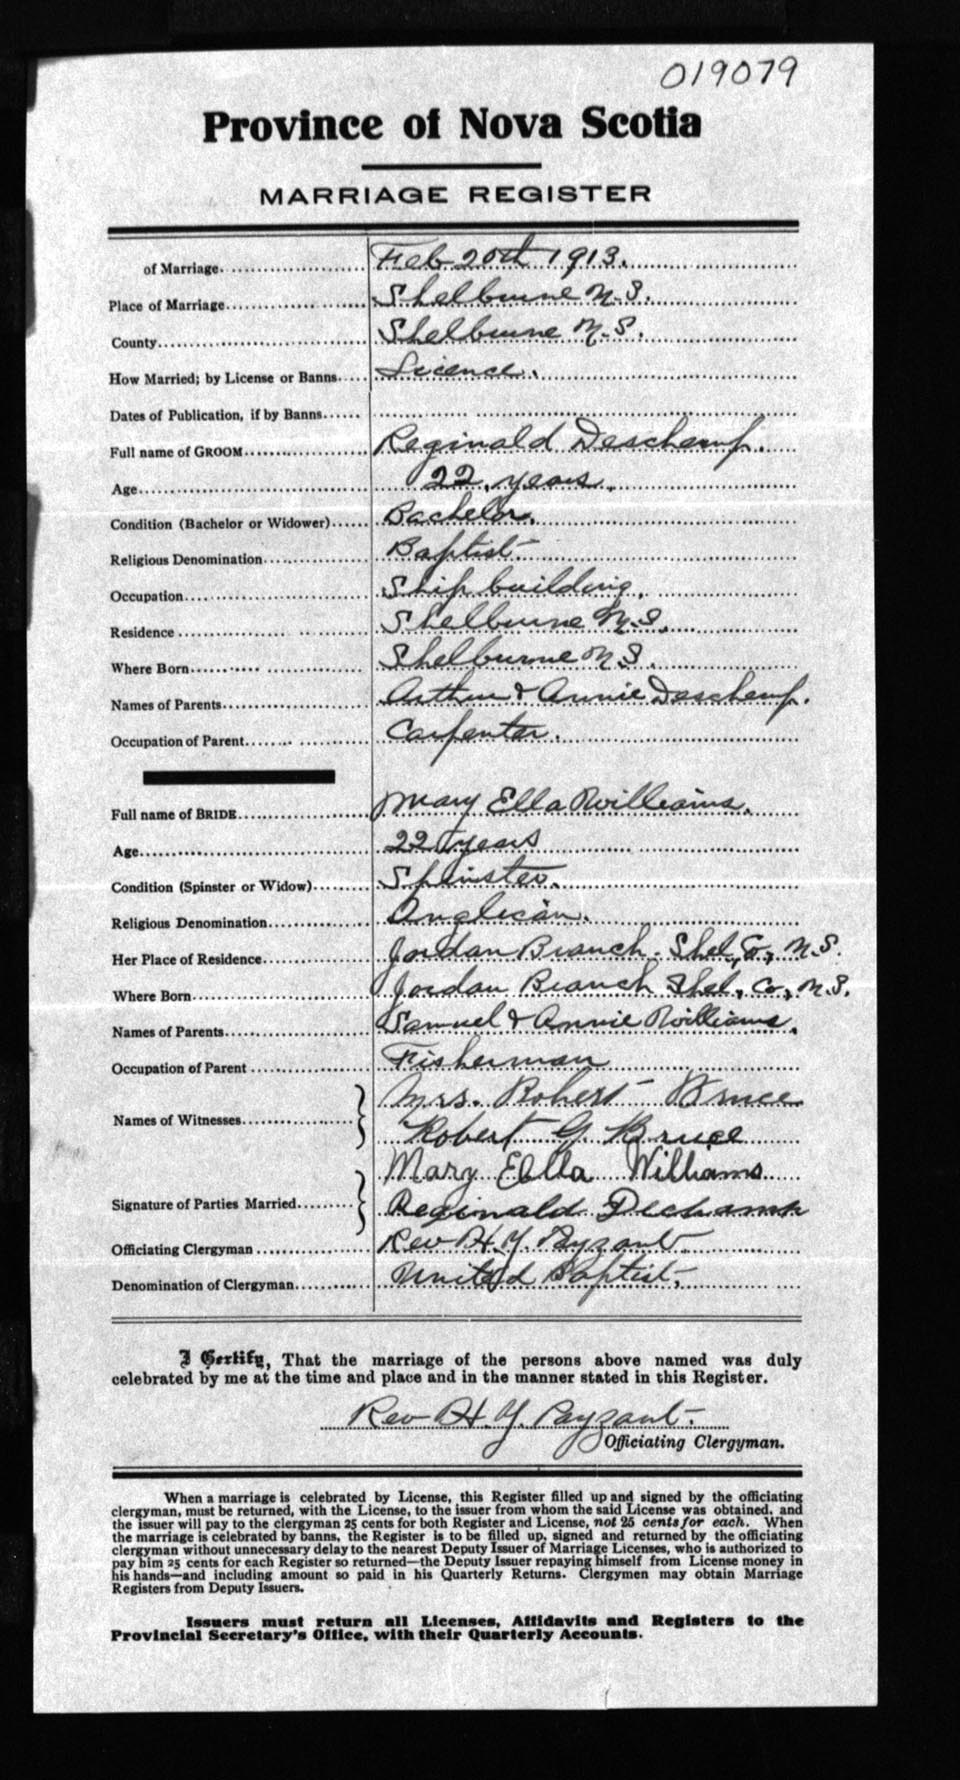 019079
Province of Nova Scotia
MARRIAGE REGISTER
of Marriage Feb 20th 1913.
Place of Marriage Shelburne N.S.
County Shelburne N.S.
How Married; by License or Banns Licence.
Dates of Publication, if by Banns
Full name of GROOM Reginald Deschamp.
Age 22 years.
Condition (Bachelor or Widower) Bachelor.
Religious Denomination Baptist
Occupation Ship building.
Residence Shelburne N.S.
Where Born Shelburne N.S.
Names of Parents Arthur & Annie Deschamp.
Occupation of Parent Carpenter.
Full name of BRIDE Mary Ella Williams.
Age 22 years
Condition (Spinster or Widow) Spinster.
Religious Denomination Anglican.
Her Place of Residence Jordan Branch Shel, Co, N.S.
Where Born Jordan Branch Shel, Co, N.S.
Names of Parents Samuel & Annie Williams.
Occupation of Parent Fisherman
Names of Witnesses Mrs. Robert Bruce
Robert G. Bruce
Signature of Parties Married Mary Ella Williams
Reginald Dechamp
Officiating Clergyman Rev H. Y. Payzant
Denomination of Clergyman United Baptist,
I Certify, That the marriage of the persons above named was duly
celebrated by me at the time and place and in the manner stated in this Register.
Rev H. Y. Payzant.
Officiating Clergyman.
When a marriage is celebrated by License, this Register filled up and signed by the officiating
clergyman, must be returned, with the License, to the issuer from whom the said License was obtained, and
the issuer will pay to the clergyman 25 cents for both Register and License, not 25 cents for each. When
the marriage is celebrated by banns, the Register is to be filled up, signed and returned by the officiating
clergyman without unnecessary delay to the nearest Deputy Issuer of Marriage Licenses, who is authorized to
pay him 25 cents for each Register so returned—the Deputy Issuer repaying himself from License money in
his hands—and including amount so paid in his Quarterly Returns. Clergymen may obtain Marriage
Registers from Deputy Issuers.
Issuers must return all Licenses, Affidavits and Registers to the
Provincial Secretary's Office, with their Quarterly Accounts.